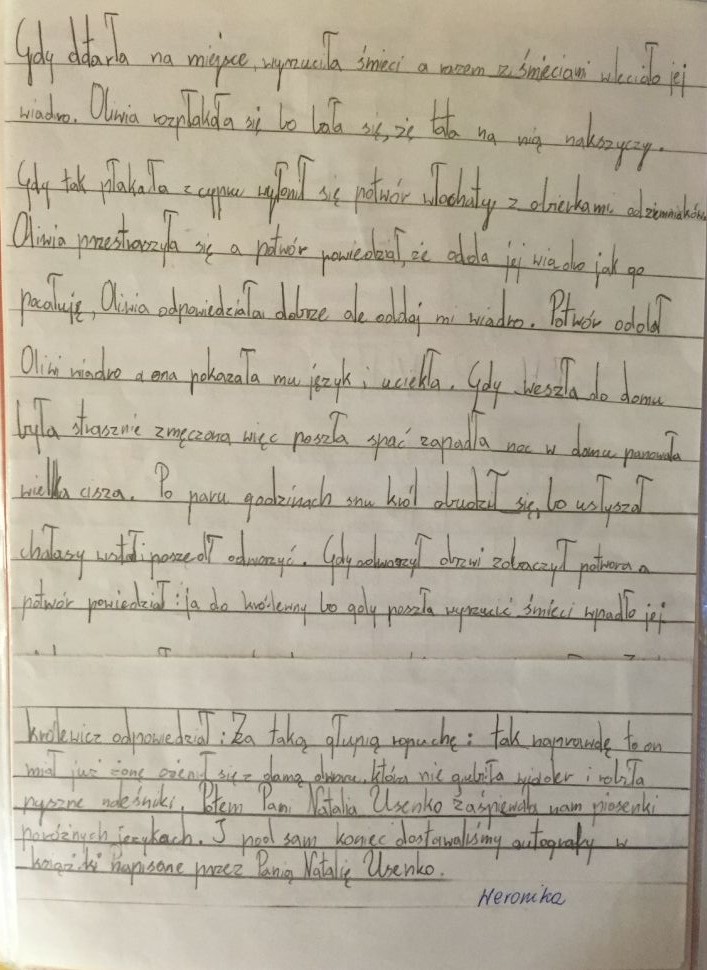 Gdy dtarła na miejsce, wyrzuciła śmieci a razem z śmieciami wleciało jej
wiadro. Oliwia rozpłakała się bo bała się, że tata na nią nakszyczy.
Gdy tak płakała z cypru wyłonił się potwór włochaty z obierkami odziemniaków.
Oliwia przestraszyła się a potwór powiedział, że odda jej wiadro jak go
pocałuję, Oliwia odpowiedziała: dobrze ale oddaj mi wiadro. Potwór oddał
Oliwi wiadro a ona pokazała mu język i uciekła. Gdy weszła do domu
była strasznie zmęczona więc poszła spać zapadła noc w domu panowała
wielka cisza. Po paru godzinach snu król obudził się, bo usłyszał
chałasy wstał i poszedł odworzyć. Gdy odworzył drzwi zobaczył potwora a
potwór powiedział: ja do królewny bo gdy poszła wyrzucić śmieci wpadło jej
królewicz odpowiedział: Za taką głupią ropuchę: tak naprawdę to on
miał już żonę ożenił się z damą dworu, która nie gubiła wiader i robiła
pyszne naleśniki. Potem Pani Natalia Usenko zaśpiewała nam piosenki
poróżnych językach. I pod sam koniec dostawaliśmy autografy w
książki napisane przez Panią Natalię Usenko.
Weronika